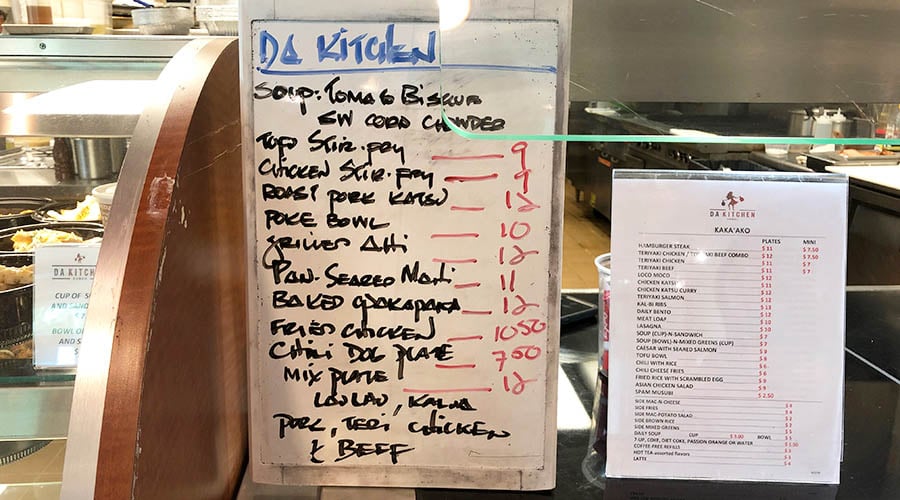 DA KITCHEN
SOUP: TOMATO BISQUE
SW CORN CHOWDER
TOFU STIR-FRY 9
CHICKEN STIR-FRY 9
ROAST PORK KATSU 12
POKE BOWL 10
GRILLED AHI 12
PAN-SEARED MAHI 11
BAKED OPAKAPAKA 12
FRIED CHICKEN 10.50
CHILI DOG PLATE 7.50
MIX PLATE 12
LAULAU, KALUA
PORK, TERI CHICKEN
& BEEF
DA KITCHEN
CUP OF
AND
BOWL
AND
DA KITCHEN
KAKA'AKO
PLATES MINI
HAMBURGER STEAK $ 11 $ 7.50
TERIYAKI CHICKEN / TERIYAKI BEEF COMBO $ 12 $ 7.50
TERIYAKI CHICKEN $ 11 $ 7
TERIYAKI BEEF $ 11 $ 7
LOCO MOCO
CHICKEN KATSU
CHICKEN KATSU CURRY
TERIYAKI SALMON
KAL-BI RIBS
DAILY BENTO
MEAT LOAF
LASAGNA
SOUP (CUP)-N-SANDWICH
SOUP (BOWL)-N-MIXED GREENS (CUP)
CAESAR WITH SEARED SALMON
TOFU BOWL
CHILI WITH RICE
CHILI CHEESE FRIES
FRIED RICE WITH SCRAMBLED EGG
ASIAN CHICKEN SALAD
SPAM MUSUBI $ 2.50
SIDE MAC-N-CHEESE
SIDE FRIES
SIDE MAC-POTATO SALAD
SIDE BROWN RICE
SIDE MIXED GREENS
DAILY SOUP CUP $ 3.00 BOWL $ 5
7-UP, COKE, DIET COKE, PASSION ORANGE OR WATER
COFFEE-FREE REFILLS
HOT TEA-assorted flavors
LATTE $ 4